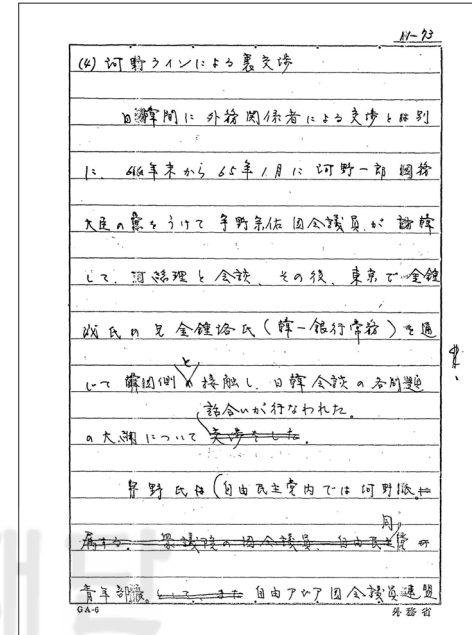 XI-73
(4) 河野ラインによる裏交渉
日韓間に外務関係者による交渉とは別
に、64年末から65年1月に河野一郎国務
大臣の意をうけて宇野宗佑国会議員が訪韓
して、丁総理と会談、その後、東京で金鍾
泌氏の兄金鍾珞氏(韓一銀行常務)を通
じて韓国側と接触し、日韓会談の各問題
の大綱について話合いが行なわれた。
宇野氏は(自由民主党内では河野派
属する 衆議院の国会議員、自由民主党の
同
青年部長。として、また 自由アジア国会議員連盟
GA-6
外務省
재단